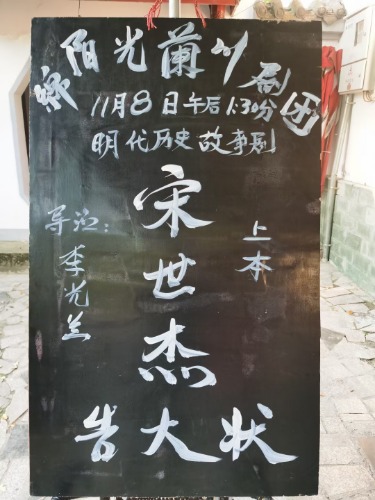 绵阳光兰川剧团
11月8日午后1:30分
明代历史故事剧
宋世杰
告大状
上本
导演:李光兰